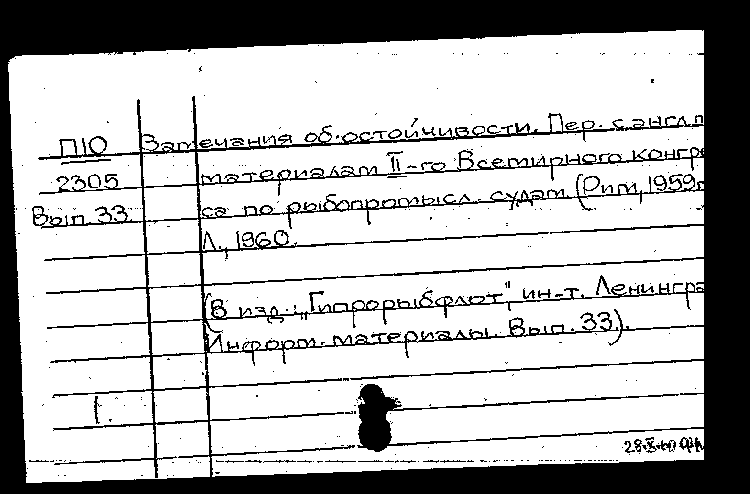 П10 Замечания об остойчивости. Пер. с англ. п
2305 материалам II-го Всемирного конгре
Вып. 33 са по рыбопромысл. судам (Рим, 1959г
Л., 1960.
(В изд.: „Гипрорыбфлот", ин-т. Ленингра
Информ. материалы. Вып. 33).
1.